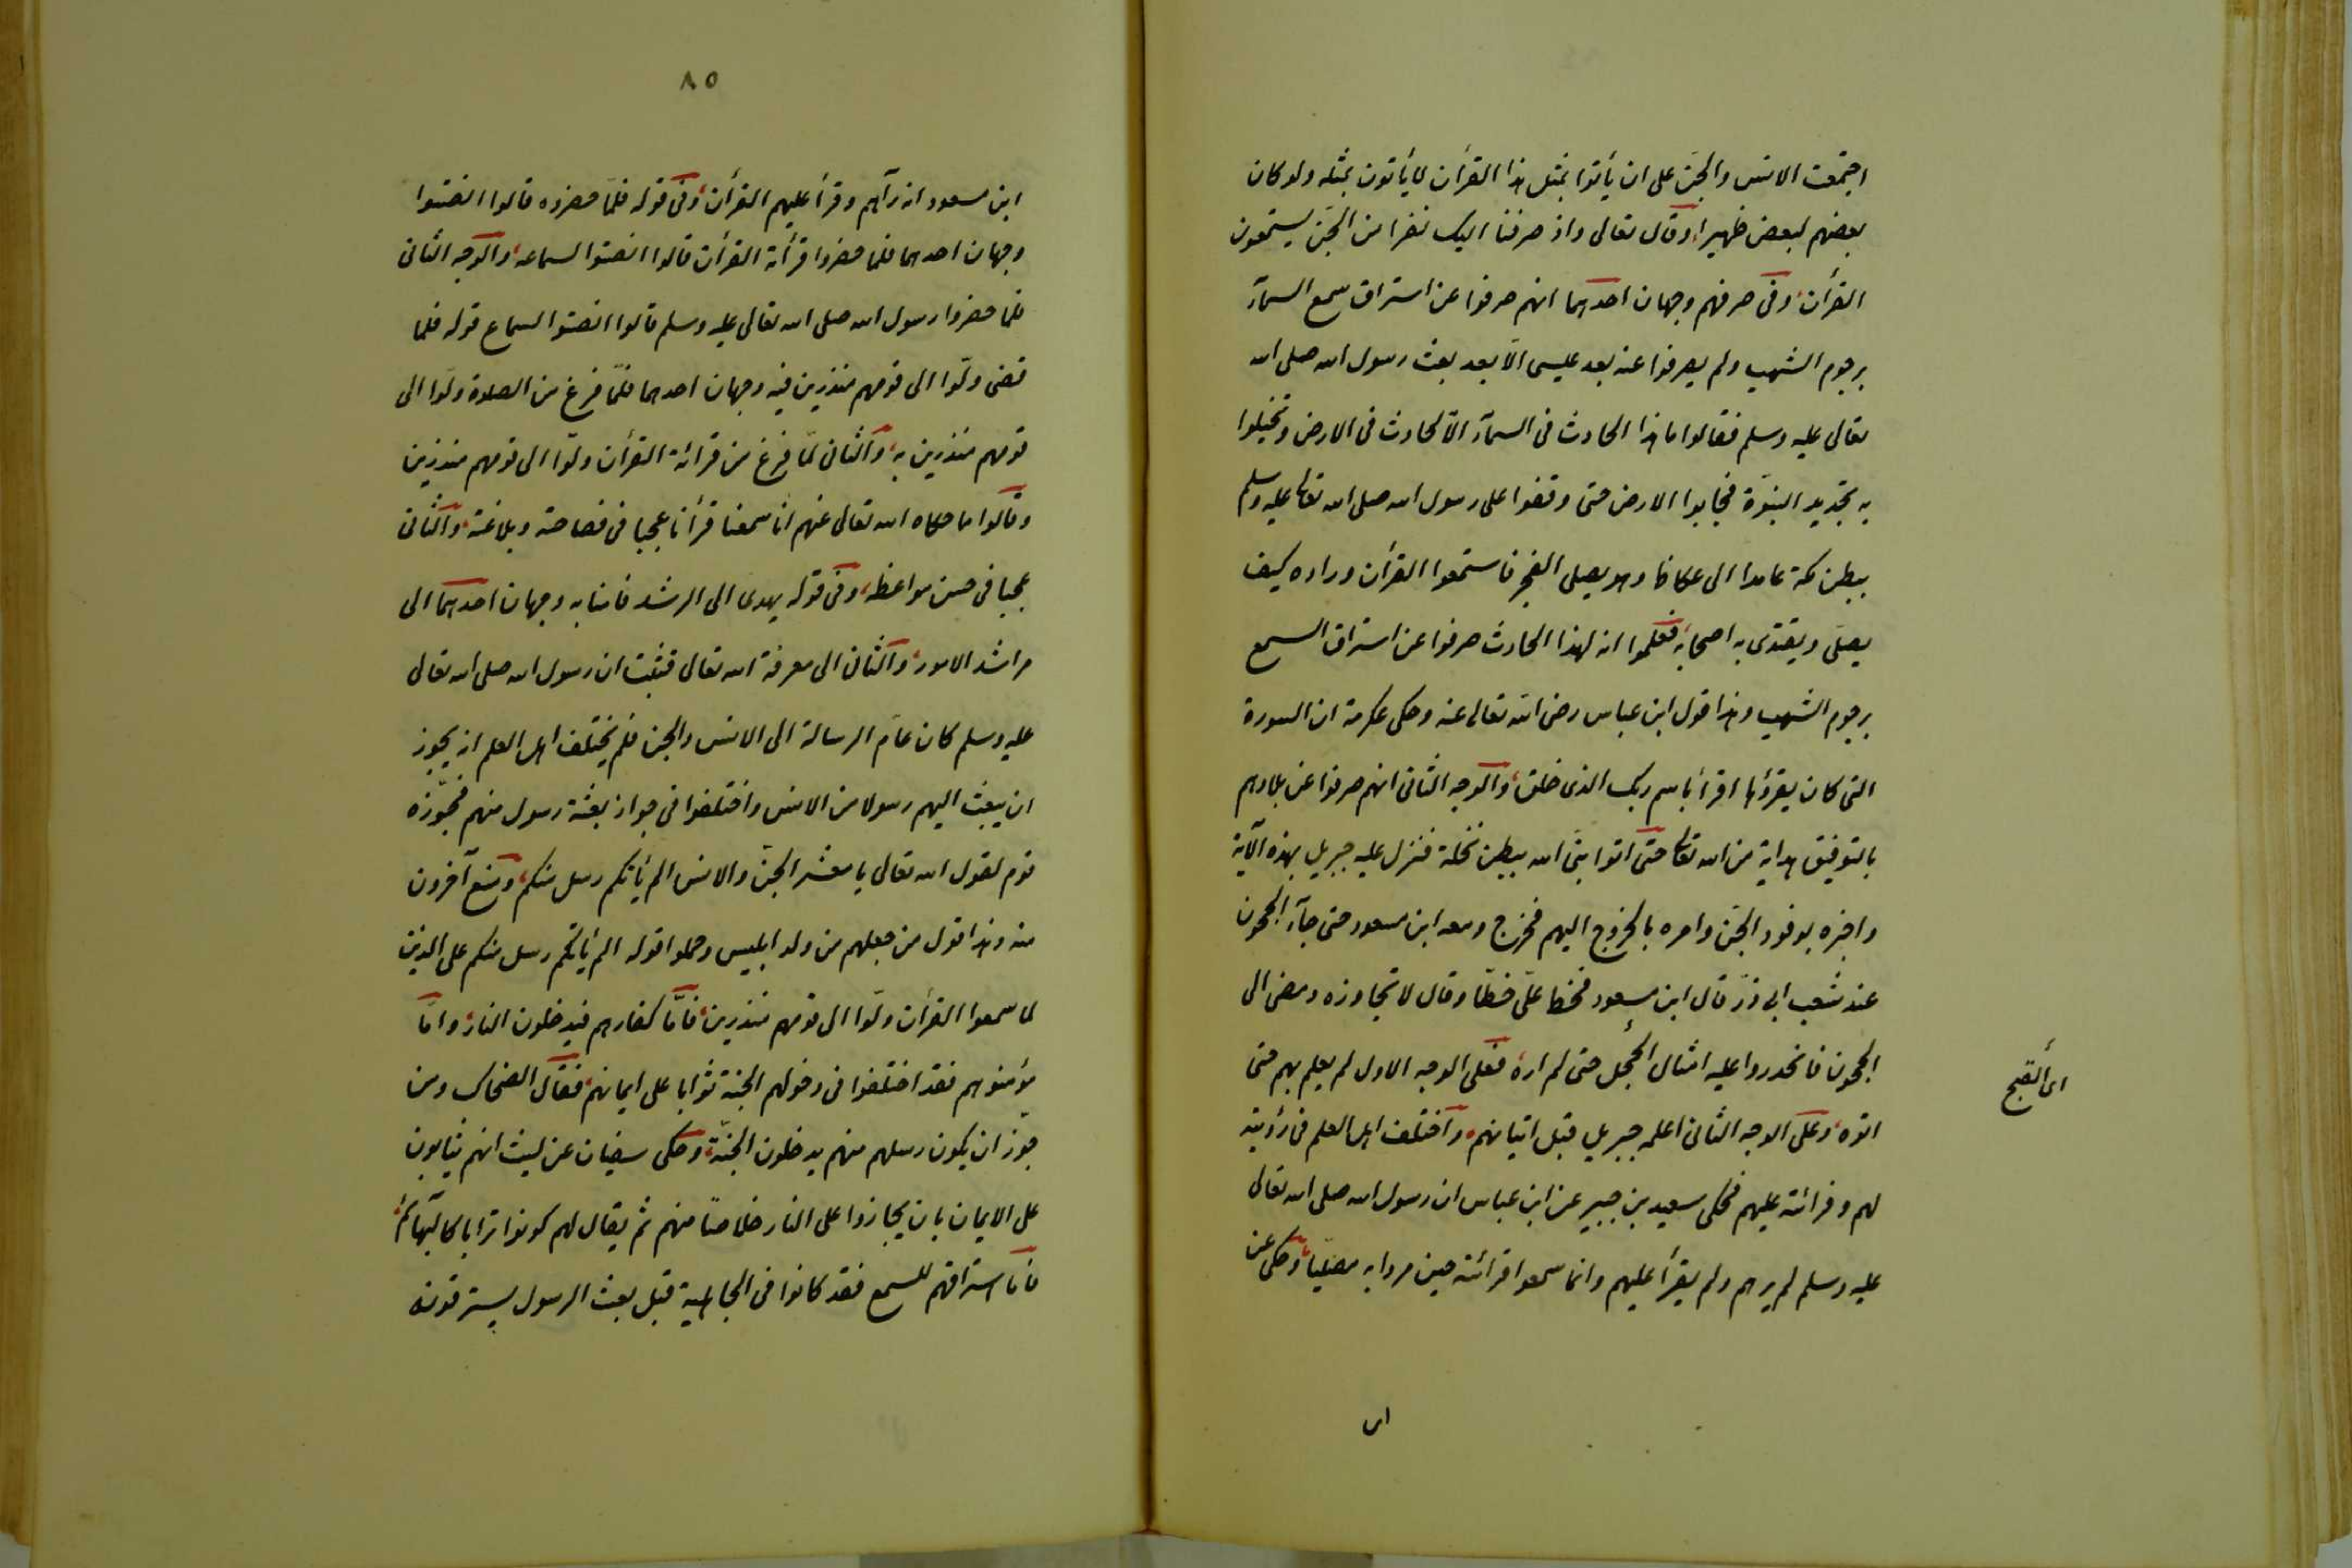 اجتمعت الانس والجن على ان يأتوا بمثل هذا القرأن لا يأتون بمثله ولو كان
بعضهم لبعض ظهيرا وقال تعالى واذ صرفنا اليك نفرا من الجن يستمعون
القرأن وفى صرفهم وجهان احدهما انهم صرفوا عن استراق سمع السمآء
برجوم الشهب ولم يصرفوا عنه بعد عيسى الّا بعد بعث رسول الله صلى الله
تعالى عليه وسلم فقالوا ما هذا الحادث فى السمآء الّا لحادث فى الارض وتخيلوا
به تجديد النبوّة فجابوا الارض حتى وقفوا على رسول الله صلى الله تعالى عليه وسلم
ببطن مكة عامدا الى عكاظ وهو يصلى الفجر فاستمعوا القرأن وراوه كيف
يصلى ويقتدى به اصحابه فعلموا انه لهذا الحادث صرفوا عن استراق السمع
برجوم الشهب وهذا قول ابن عباس رضى الله تعالى عنه وحكى عكرمة ان السورة
التى كان يقرؤها اقرأ باسم ربك الذى خلق والوجه الثانى انهم صرفوا عن بلادهم
بالتوفيق هداية من الله تعالى حتى اتوا نبىّ الله ببطن نخلة فنزل عليه جبريل بهذه الآية
واخبره بوفود الجن وامره بالخروج اليهم فخرج ومعه ابن مسعود حتى جآء الحجون
عند شعب ابى ذرّ قال ابن مسعود فخط علىّ خطّا وقال لا تجاوزه ومضى الى
الحجون فانحدروا عليه امثال الحجل حتى لم اره فعلى الوجه الاول لم يعلم بهم حتى
اى القبج
اتوه وعلى الوجه الثانى اعلمه جبريل قبل اتيانهم واختلف اهل العلم فى رؤيته
لهم وقرائته عليهم فحكى سعيد بن جبير عن ابن عباس ان رسول الله صلى الله تعالى
عليه وسلم لم يرهم ولم يقرأ عليهم وانما سمعوا قرائته حين مروا به مصليا وحكى عن
ابن
٨٥
ابن مسعود انه رآهم وقرأ عليهم القرأن وفى قوله فلمّا حضروه قالوا انصتوا
وجهان احدهما فلما حضروا قرأئة القرأن قالوا انصتوا لسماعه والوجه الثانى
فلما حضروا رسول الله صلى الله تعالى عليه وسلم قالوا انصتوا لسماع قوله فلما
قضى ولّوا الى قومهم منذرين فيه وجهان احدهما فلمّا فرغ من الصلوة ولّوا الى
قومهم منذرين به والثانى لمّا فرغ من قرائة القرأن ولّوا الى قومهم منذرين
وقالوا ما حكاه الله تعالى عنهم انّا سمعنا قرأنا عجبا فى فصاحته وبلاغته والثانى
عجبا فى حسن مواعظه وفى قوله يهدى الى الرشد فامنا به وجهان احدهما الى
مراشد الامور والثانى الى معرفة الله تعالى فثبت ان رسول الله صلى الله تعالى
عليه وسلم كان عامّ الرسالة الى الانس والجن فلم يختلف اهل العلم انه يجوز
ان يبعث اليهم رسولا من الانس واختلفوا فى جواز بعثة رسول منهم فجوّزه
قوم لقول الله تعالى يا معشر الجنّ والانس الم يأتكم رسل منكم ومنع آخرون
منه وهذا قول من جعلهم من ولد ابليس وحملوا قوله الم يأتكم رسل منكم على الذين
لما سمعوا القرأن ولّوا الى قومهم منذرين فامّا كفارهم فيدخلون النار وامّا
مؤمنوهم فقد اختلفوا فى دخولهم الجنة ثوابا على ايمانهم فقال الضحاك ومن
جوّز ان يكون رسلهم منهم يدخلون الجنّة وحكى سفيان عن ليث انهم يثابون
على الايمان بان يجازوا على النار خلاصا منهم ثم يقال لهم كونوا ترابا كالبهائم
فامّا استراقهم للسمع فقد كانوا فى الجاهلية قبل بعث الرسول يسترقونه